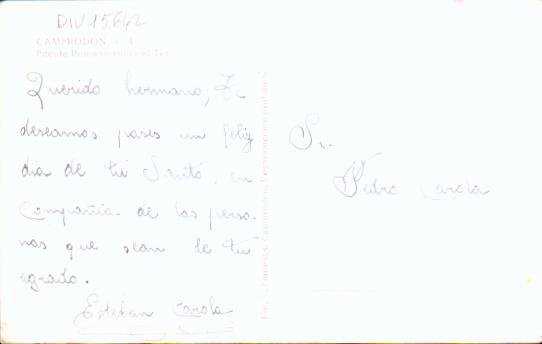 DIV15642
CAMPRODON
Puente
Querido hermano; Te
deseamos pases un feliz
dia de tu Santo, en
Compañia de las perso-
nas que sean de tu
agrado.
Esteban Carola
Sr.
Pedro Carola